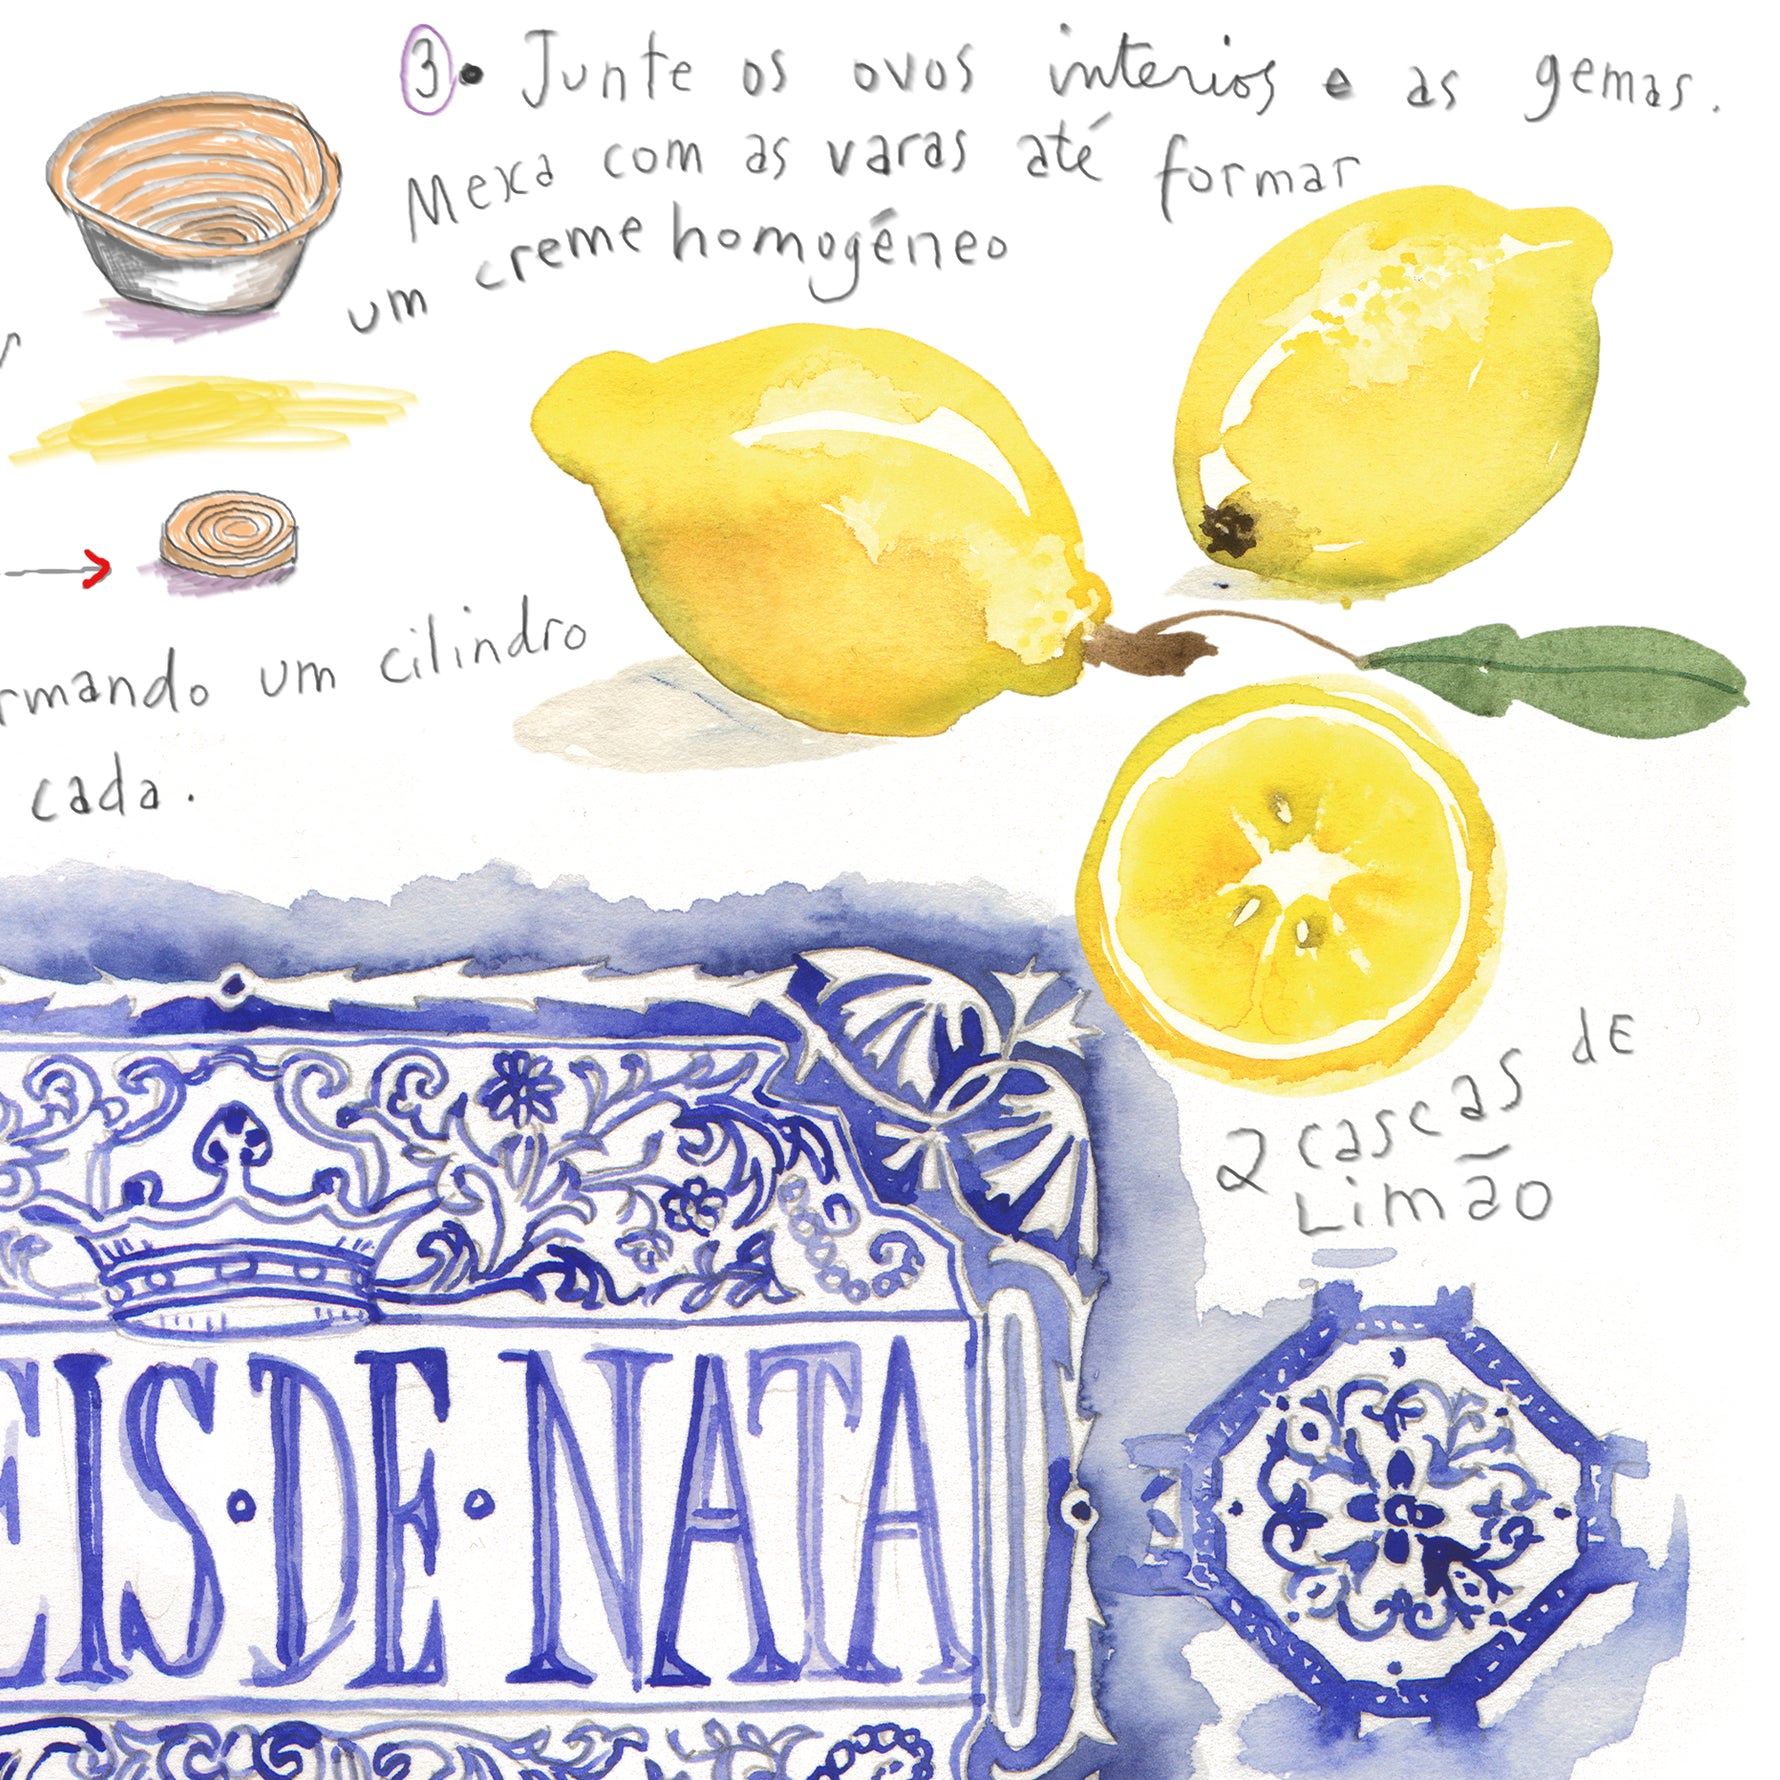 3. Junte os ovos interios e as gemas.
Mexa com as varas até formar
um creme homogéneo
rmando um cilindro
cada.
2 cascas de
Limão
EIS·DE·NATA